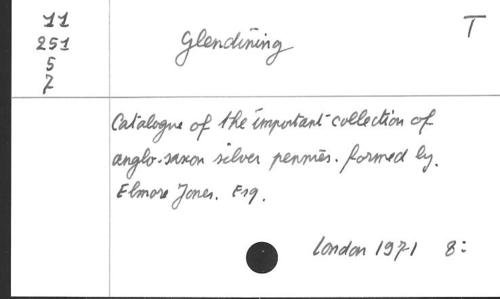 11
251
5
7
Glendining
T
Catalogue of the important collection of
anglo-saxon silver pennies. formed by.
Elmore Jones. Esq.
London 1971 8: